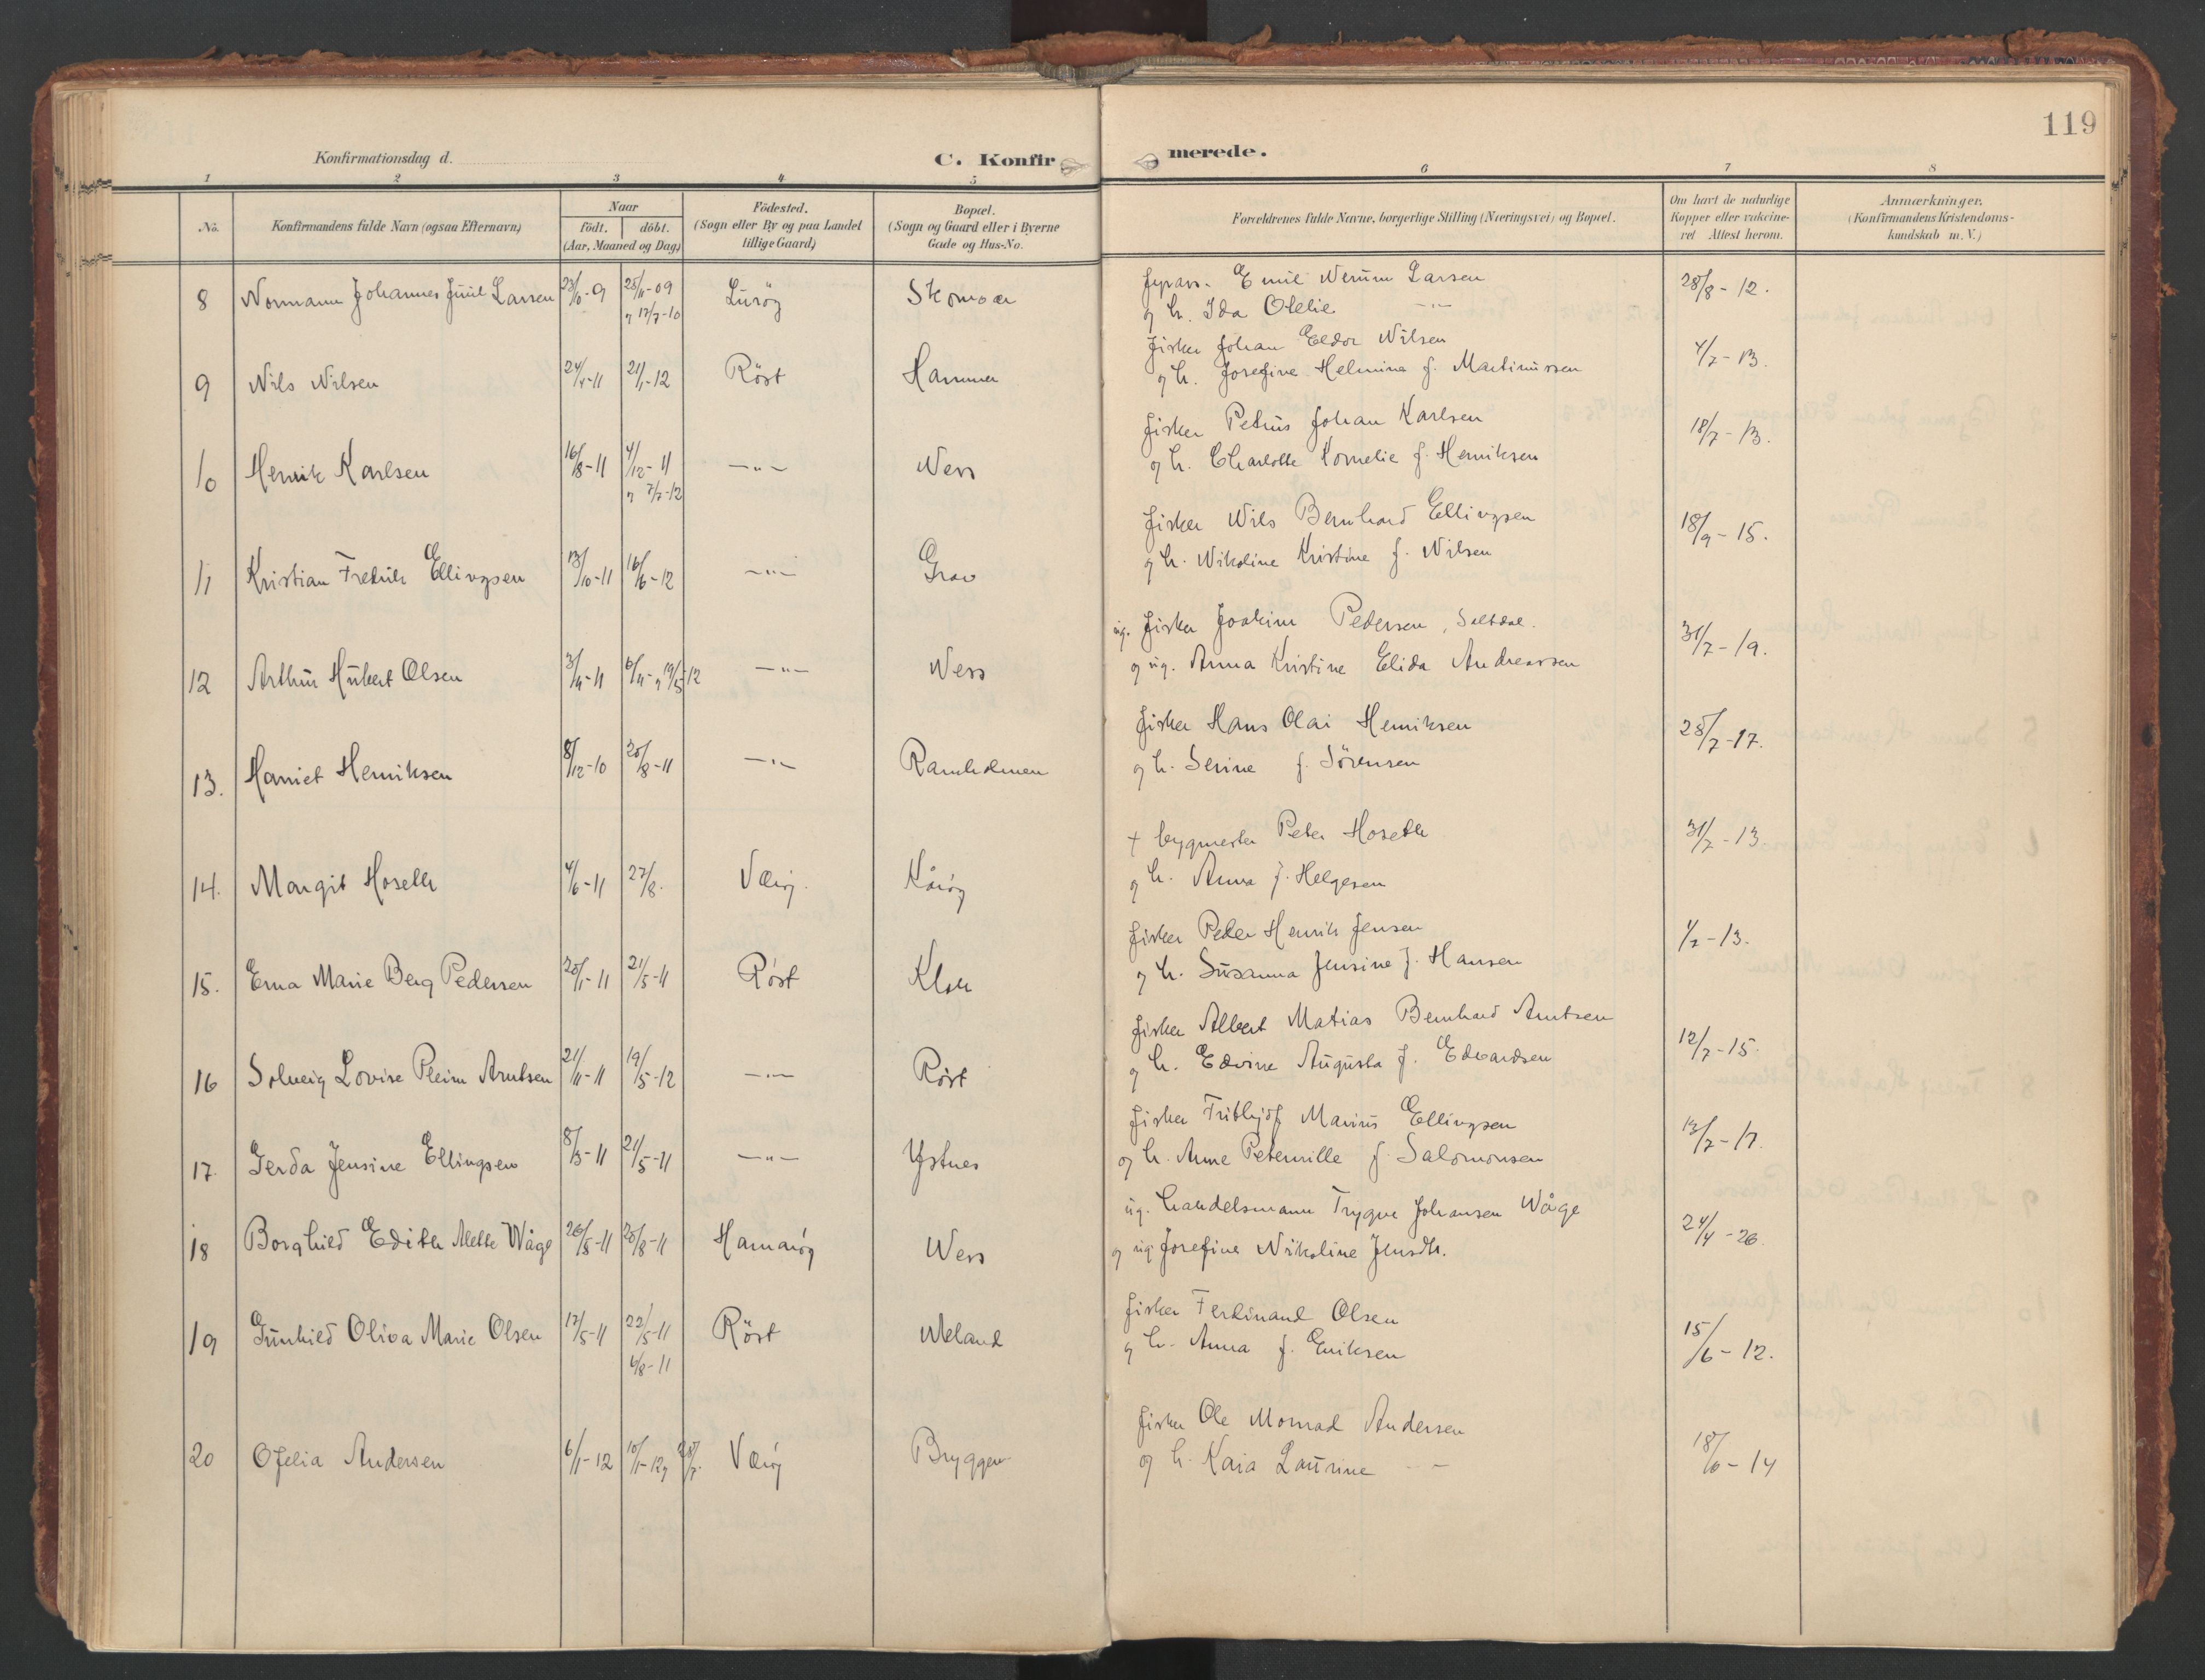 119
Konfirmationsdag d.
C. Konfir
merede.
1 2 3 4 5 6 7 8
No.
Konfirmandens fulde Navn (ogsaa Efternavn)
Naar
födt. döbt.
(Aar, Maaned og Dag)
Födested.
(Sogn eller By og paa Landet
tillige Gaard)
Bopæl.
(Sogn og Gaard eller i Byerne
Gade og Hus-No.
Forældrenes fulde Navne, borgerlige Stilling (Næringsvei) og Bopæl.
Om havt de naturlige
Kopper eller vakcine-
ret Attest herom.
Anmærkninger.
(Konfirmandens Kristendoms-
kundskab m. V.)
8 Normann Johannes Juul Larsen 23/10-9 28/11-09 Luröy Skomvær
og 17/7-10
Fyrass. Emil Nerum Larsen 28/8-12.
og h. Ida Otelie -"-
9 Nils Nilsen 24/4-11 21/1-12 Röst Hammer
Fisker Johan Eldor Nilsen 4/7-13.
og h. Josefine Helmine f. Martinussen
10 Henrik Karlsen 16/8-11 4/12-11 -"- Ness
og 7/7-12
Fisker Petrus Johan Karlsen 18/7-13.
og h. Charlotte Kornelie f. Henriksen
11 Kristian Fredrik Ellingsen 13/10-11 16/6-12 -"- Grav
Fisker Nils Bernhard Ellingsen 18/9-15.
og h. Nikoline Kristine f. Nilsen
12 Arthur Hubert Olsen 3/4-11 6/4-og 19/5-12 -"- Ness
ug. Fisker Joakim Pedersen, Saltdal. 31/7-19.
og ug. Anna Kristine Elida Andreassen
13. Harriet Henriksen 8/12-10 20/8-11 -"- Ramholmen
Fisker Hans Olai Henriksen 28/7-17.
og h. Serine f. Sörensen
14. Margit Hoseth 4/6-11 27/8. Væröy. Kåröy
+ bygmester Peter Hoseth 31/7-13.
og h. Anna f. Helgesen
15. Erna Marie Berg Pedersen 20/1-11 21/5-11 Röst Klak
Fisker Peder Henrik Jensen 1/7-13.
og h. Susanna Jensine f. Hansen
16 Solveig Lovise Pleim Arntsen 21/11-11 19/5-12 -"- Röst
Fisker Albert Matias Bernhard Arntsen 12/7-15.
og h. Edvine Augusta f. Edvardsen
17. Gerda Jensine Ellingsen 8/3-11 21/5-11 -"- Ystnes
Fisker Frithjof Marius Ellingsen 13/7-17.
og h. Anne Peternille f. Salomonsen
18 Borghild Edith Alette Wåge 26/5-11 20/8-11 Hamaröy Ness
ug. handelsmann Trygve Johansen Wåge 24/4-26.
og ug. Josefine Nikoline Jensdtr.
19 Gunhild Oliva Marie Olsen 17/5-11 22/5-11 Röst Meland
6/8-11
Fisker Ferdinand Olsen 15/6-12.
og h. Anna f. Eriksen
20 Ofelia Andersen 6/1-12 10/1-12 og 28/7. Væröy Bryggen
Fisker Ole Monrad Andersen 18/6-14
og h. Kaia Laurine -"-